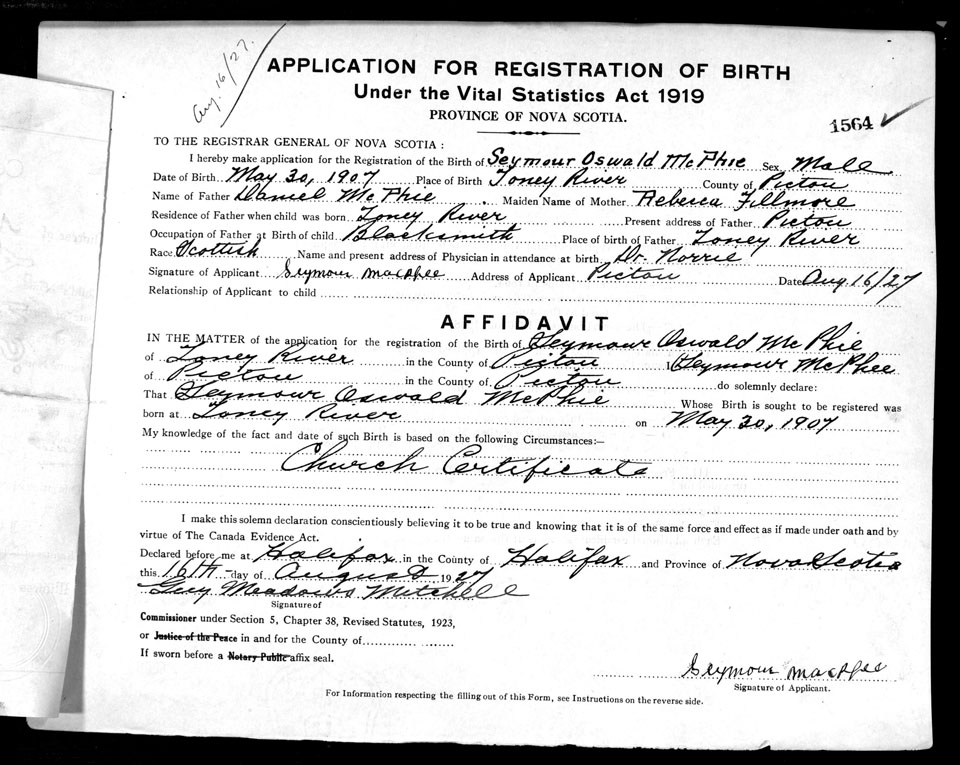 Aug. 16/27.
APPLICATION FOR REGISTRATION OF BIRTH
Under the Vital Statistics Act 1919
PROVINCE OF NOVA SCOTIA.
1564
TO THE REGISTRAR GENERAL OF NOVA SCOTIA :
I hereby make application for the Registration of the Birth of Seymour Oswald McPhie Sex Male
Date of Birth May 30, 1907 Place of Birth Toney River County of Pictou
Name of Father Daniel McPhie Maiden Name of Mother Rebecca Fillmore
Residence of Father when child was born Toney River Present address of Father Pictou
Occupation of Father at Birth of child Blacksmith Place of birth of Father Toney River
Race Scottish Name and present address of Physician in attendance at birth Dr. Norrie
Signature of Applicant Seymour MacPhee Address of Applicant Pictou Date Aug. 16/27
Relationship of Applicant to child
AFFIDAVIT
IN THE MATTER of the application for the registration of the Birth of Seymour Oswald McPhie
of Toney River in the County of Pictou I Seymour McPhee
of Pictou in the County of Pictou do solemnly declare:
That Seymour Oswald McPhie Whose Birth is sought to be registered was
born at Toney River on May 30, 1907
My knowledge of the fact and date of such Birth is based on the following Circumstances:—
Church Certificate
I make this solemn declaration conscientiously believing it to be true and knowing that it is of the same force and effect as if made under oath and by
virtue of The Canada Evidence Act.
Declared before me at Halifax in the County of Halifax and Province of Nova Scotia
this 16th day of August 1927
Guy Meadows Mitchell
Signature of
Commissioner under Section 5, Chapter 38, Revised Statutes, 1923,
or Justice of the Peace in and for the County of
If sworn before a Notary Public affix seal.
Seymour MacPhee
Signature of Applicant.
For Information respecting the filling out of this Form, see Instructions on the reverse side.